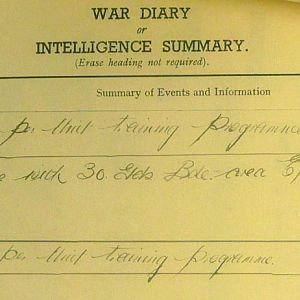 WAR DIARY
or
INTELLIGENCE SUMMARY.
(Erase heading not required).
Summary of Events and Information
per Unit training programme
with 30. Gds Bde. area
per Unit training programme.